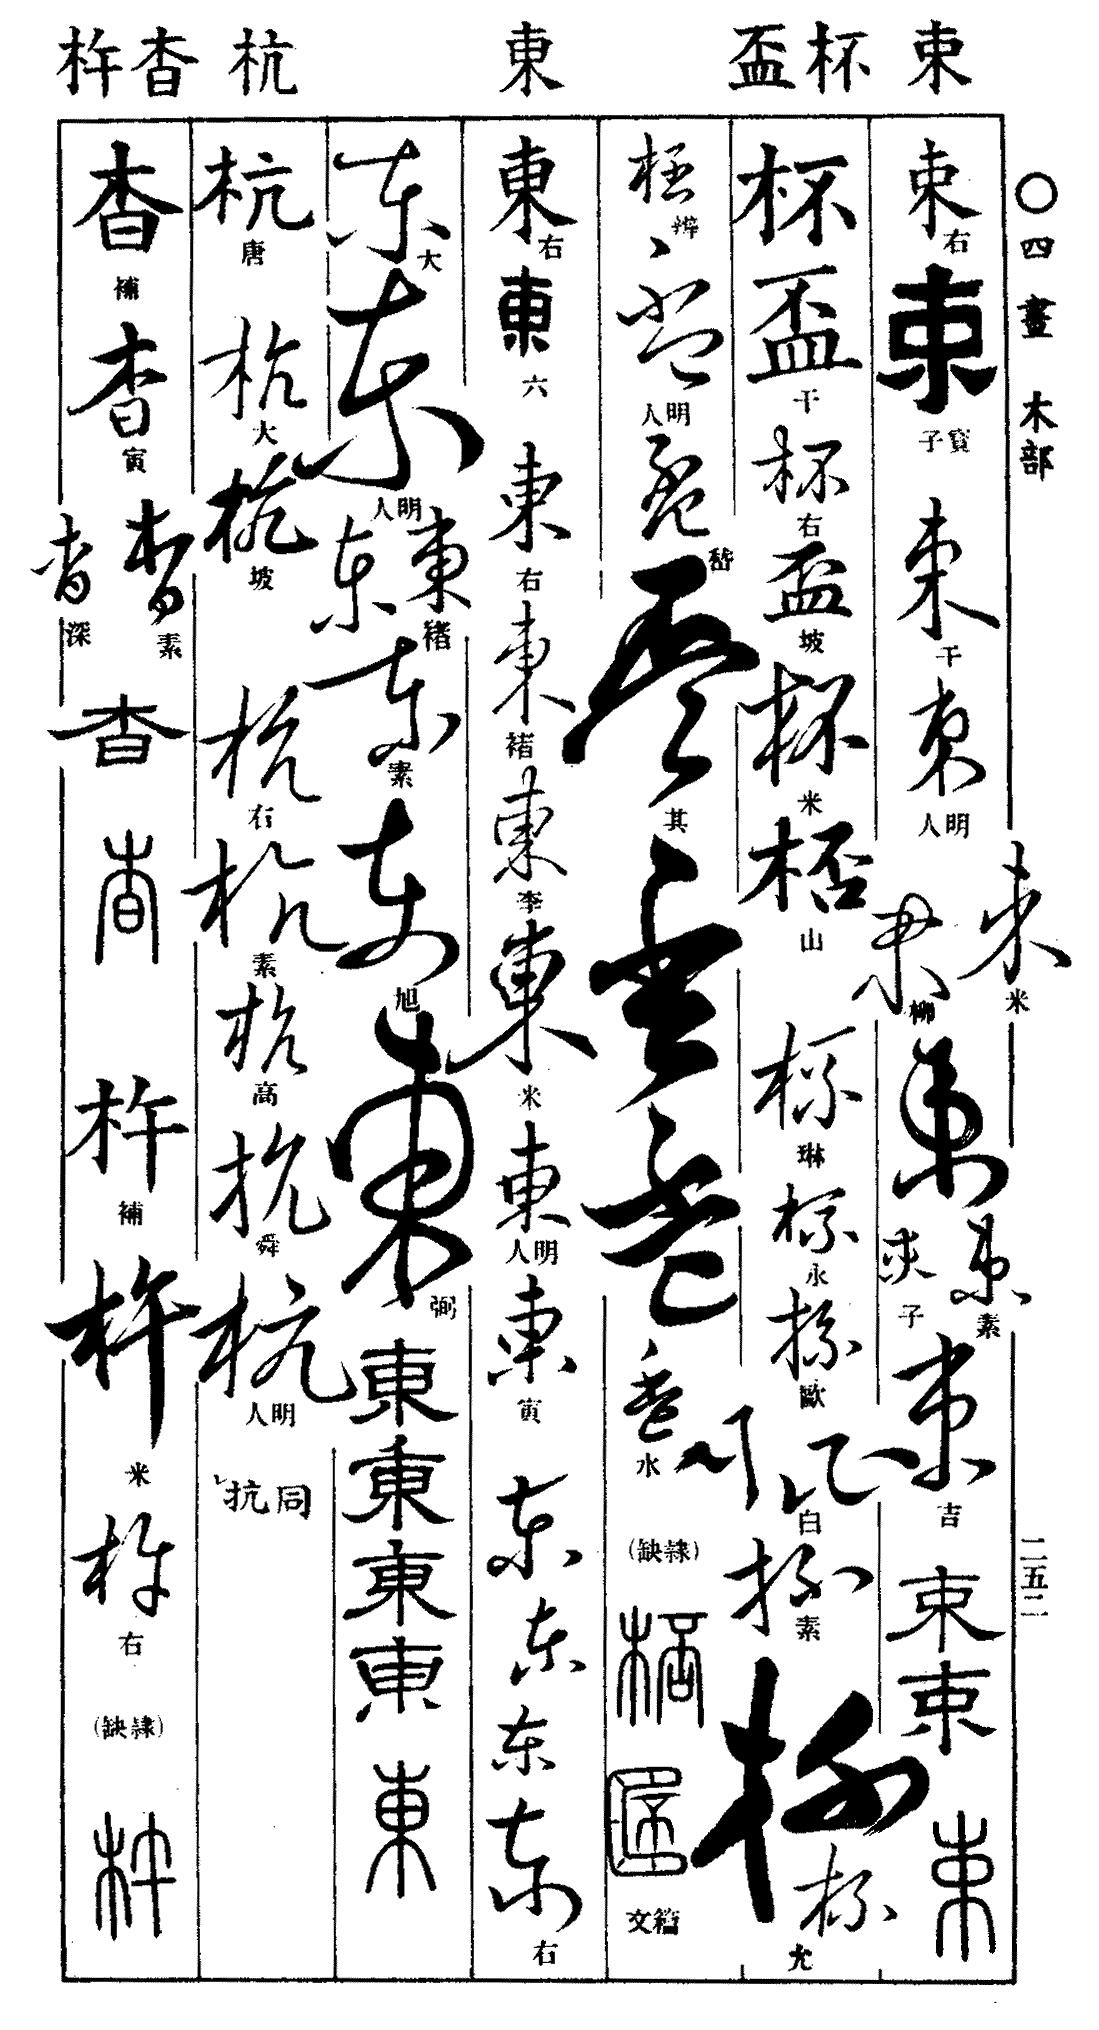 束 杯 盃 東 杭 杳 杵
〇四畫 木部
二五二
束 右
束 寶子
束 干
束 明人
束 米
束 柳
束
束 素
束 子
束 吉
束
束
束
杯
盃 干
杯 右
盃 坡
杯 米
桮 山
杯 琳
杯 永
杯 歐
杯 白
杯 素
杯
杯 允
杯 辨
盃 明人
盃 嵆
盃 其
盃
盃
盃 水
（隷缺）
桮
籀文
東 右
東 六
東 右
東 褚
東 李
東 米
東 明人
東 寅
東
東
東
東 右
東 大
東 明人
東 褚
東
東 素
東 旭
東 弼
東
東
東
東
東
杭 唐
杭 大
杭 坡
杭 右
杭 素
杭 高
杭 舜
杭 明人
同抗
杳 補
杳 寅
杳 素
杳 深
杳
杳
杵 補
杵 米
杵 右
（隷缺）
杵